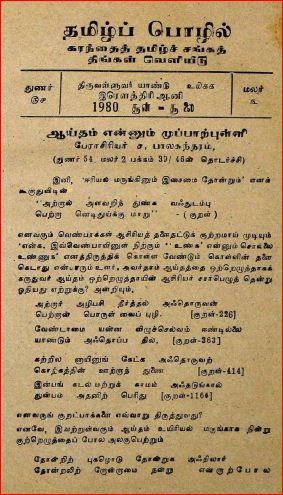 தமிழ்ப் பொழில்
கரந்தைத் தமிழ்ச் சங்கத்
திங்கள் வெளியீடு
துணர்
திருவள்ளுவர் யாண்டு
மலர்
இரௌத்திரி ஆனி
1980 சூன் - சூலை
ஆய்தம் என்னும் முப்பாற்புள்ளி
பேராசிரியர் ச, பாலசுந்தரம்,
(துணர் 54, மலர் 2 பக்கம் 39/46ன் தொடர்ச்சி)
இனி, 'ஈரியல் மருங்கினும் இசைமை தோன்றும்' எனக்
கூறுதுவின்
"ஆற்றல் அளவறிந் துண்க வஃதுடம்பு
பெற்ற னெடிதுய்க்கு மாறு" - (குறள்)
எனவரும் வெண்பாக்கள் ஆசிரியத் தளைதட்டுக் குற்றமாய் முடியும்
'என்க, இவ்வெண்பாவினுள் நிற்கும் "உண்க" என்னும் சொல்லை
உண்ணுக' எனத்திருத்திக் கொள்ள வேண்டும் கொள்ளின் தளை
கெடாது என்பாரும் உளர், அவர்தாம் ஆய்தத்தை ஒற்றெழுத்தாகக்
கருதுவர் ஆய்தம் ஒற்றெழுத்தாயின் ஆசிரியர் சார்பெழுத் தென்று
ஓதியது எற்றுக்கு? அன்றியும்,
அற்றார் அழிபசி தீர்த்தல் அஃதொருவன்
பெற்றான் பொருள் வைப் புழி. [குறள்-226]
வேண்டாமை யன்ன விழுச்செல்வம் ஈண்டில்லை
யாண்டும் அஃதொப்ப தில், [குறள்-363]
கற்றில னாயினுங் கேட்க அஃதொருவற்
கொற்கத்தின் ஊற்றாந் துணை [குறள்-414]
இன்பங் கடல் மற்றுக் காமம் அஃதடுங்கால்
துன்பம் அதனிற் பெரிது [குறள்-1166]
எனவருங் குறட்பாக்களை எவ்வாறு திருத்துவது?
எனவே, இவற்றுள்வரும் ஆய்தம் உயிரியல் மருங்காக நின்று
குற்றெழுத்தைப் போல அலகுபெற்றும்
தோன்றிற் புகழொடு தோன்றுக அஃதிலார்
தோன்றலிற் றோன்றாமை நன்று என்றாற்போல